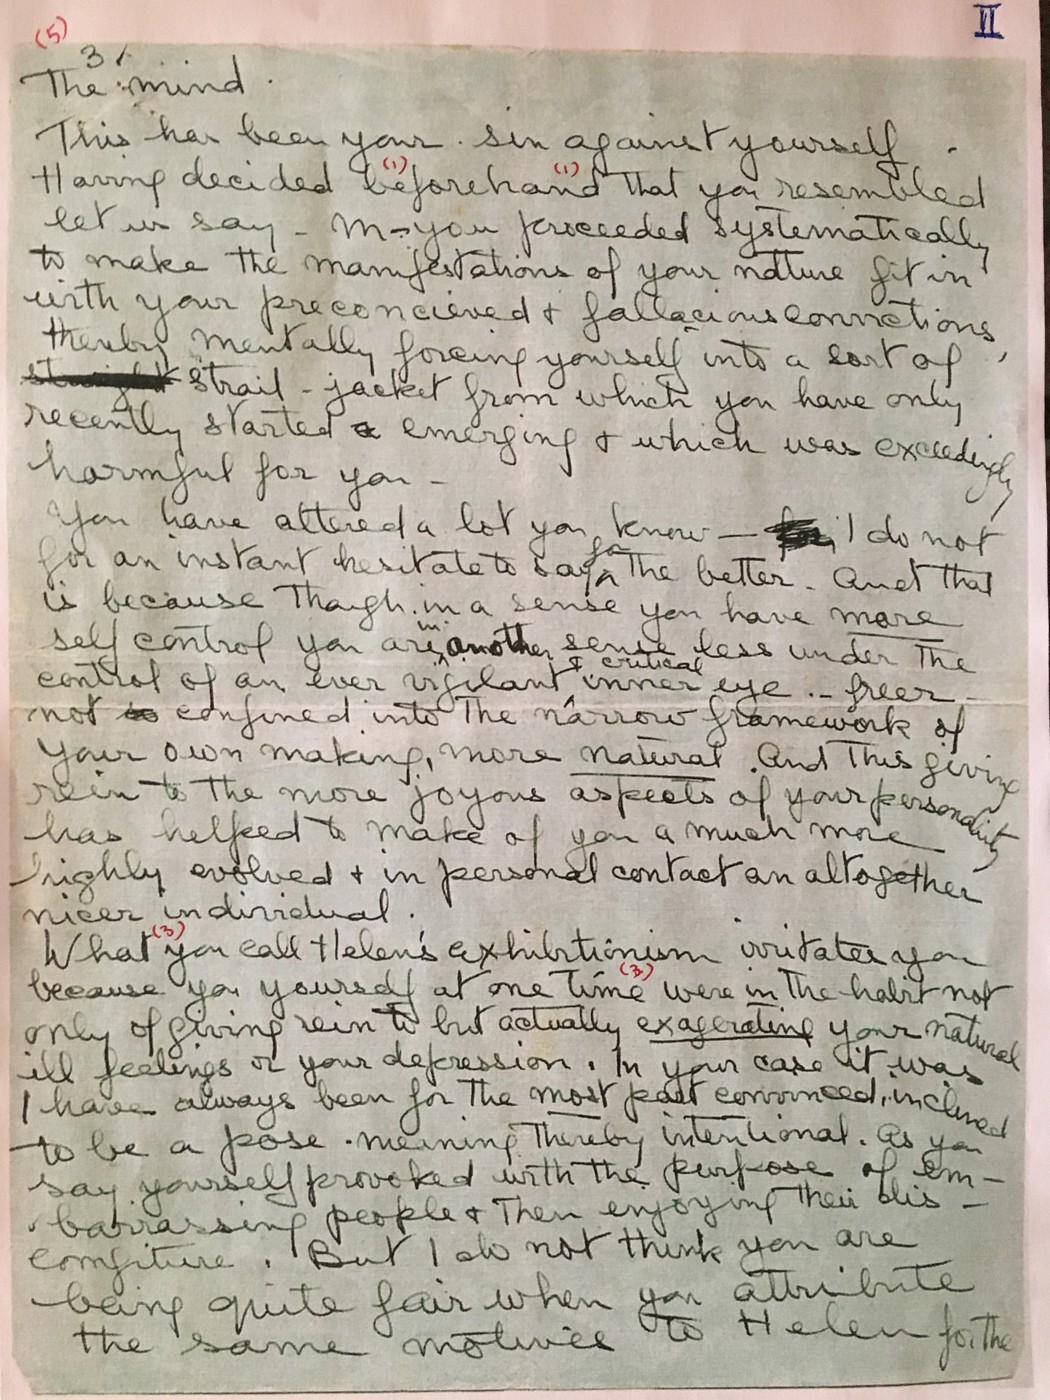 II
(5)
3/.
The mind.
This has been your sin against yourself.
(1) (1)
Having decided beforehand that you resembled
let us say - M - you proceeded systematically
to make the manifestations of your nature fit in
with your preconcieved & fallacious convictions,
thereby mentally forcing yourself into a sort of
straight strait-jacket from which you have only
recently started emerging & which was exceedingly
harmful for you -
You have altered a lot you know — I do not
for
for an instant hesitate to say the better. And that
is because though in a sense you have more
in
self control you are another sense less under the
& critical
control of an ever vigilant inner eye - freer -
not confined into the narrow framework of
your own making, more natural. And this giving
rein to the more joyous aspects of your personality
has helped to make of you a much more
highly evolved & in personal contact an altogether
nicer individual.
(3)
What you call Helen's exhibitionism irritates you
(3)
because you yourself at one time were in the habit not
only of giving rein to but actually exagerating your natural
ill feelings or your depression. In your case it was
I have always been for the most part convinced, inclined
to be a pose - meaning thereby intentional. As you
say yourself provoked with the purpose of em-
barrassing people & then enjoying their dis-
comfiture. But I do not think you are
being quite fair when you attribute
the same motives to Helen for the